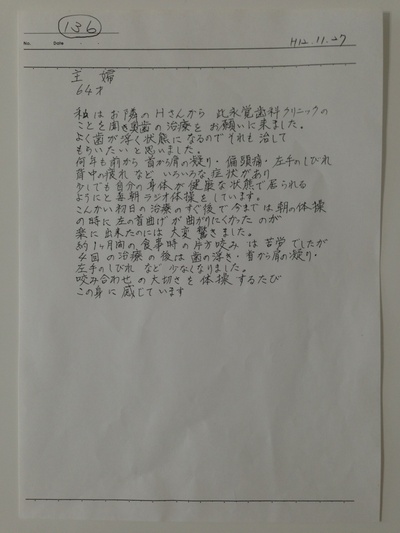 136
No.
Date
H12.11.27
主婦
64才
私はお隣のHさんから 比永覚歯科クリニックの
ことを聞き奥歯の治療をお願いに来ました。
よく歯が浮く状態になるのでそれも治して
もらいたいと思いました。
何年も前から首から肩の凝り・偏頭痛・左手のしびれ
背中の疲れなど いろいろな症状があり
少しでも自分の身体が健康な状態で居られる
ようにと毎朝ラジオ体操をしています。
こんかい初日の治療のすぐ後で今までは朝の体操
の時に左の首曲げが曲がりにくかったのが
楽に出来たのには大変驚きました。
約1ヶ月間の食事時の片方咬みは苦労でしたが
4回の治療の後は歯の浮き・首から肩の凝り・
左手のしびれなど少なくなりました。
咬み合わせの大切さを体操するたび
この身に感じています